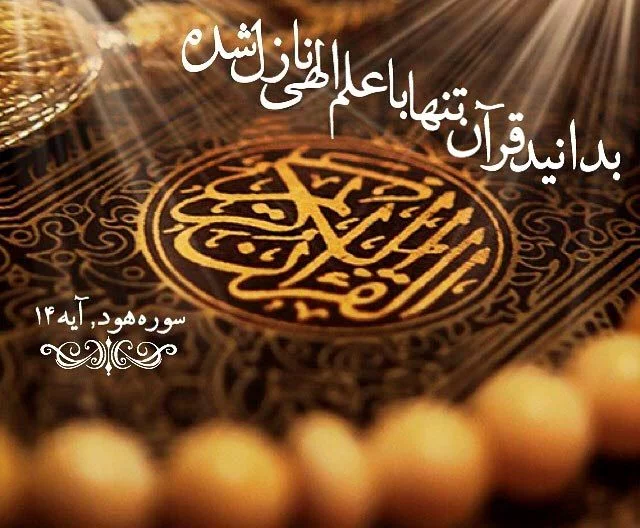 بدانید قرآن تنها با علم الهی نازل شده
القرآن الکریم
سوره هود, آیه ۱۴